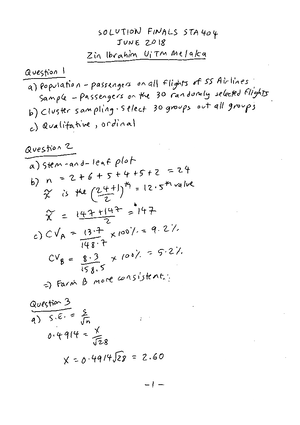 SOLUTION FINALS STA404
JUNE 2018
Zin Ibrahim UiTM Melaka
Question 1
a) Population - passengers on all flights of SS Airlines
Sample - Passengers on the 30 randomly selected flights
b) Cluster sampling. Select 30 groups out all groups
c) Qualitative, ordinal
Question 2
a) Stem-and-leaf plot
b) n = 2+6+5+4+5+2 = 24
x̃ is the (24+1/2)th = 12.5th value
x̃ = 147+147/2 = 147
c) CVA = 13.7/148.7 × 100% = 9.2%
CVB = 8.3/158.5 × 100% = 5.2%
⇒ Farm B more consistent.
Question 3
a) S.E. = s/√n
0.4914 = x/√28
x = 0.4914√28 = 2.60
-1-